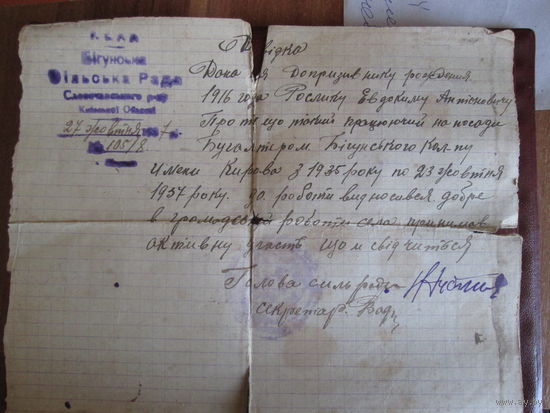 Бігунська
Сільська Рада
Словечанського р-ну
Київської Області
27 жовтня 1937 р.
№ 105/8
Довідка
Дана ця Допризивнику рождения
1916 года Рослику Евдокиму Антоновичу
Про те що такий працюючий на посади
Бугалтером Бігунського Кол-пу
имени Кирова з 1935 року по 23 жовтня
1937 року. до роботи видносився добре
в громадській роботи села принимав
активну участь що и свідчиться
Голова силь ради
секретар.
www.ay.by